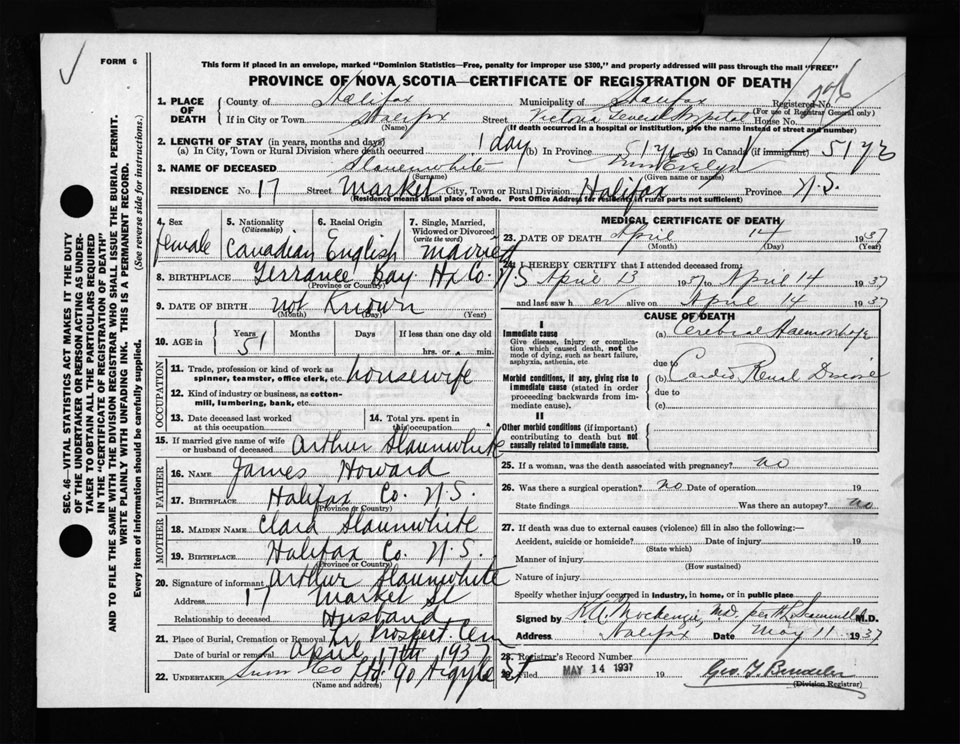 FORM 6
This form if placed in an envelope, marked "Dominion Statistics—Free, penalty for improper use $300," and properly addressed will pass through the mail "FREE"
PROVINCE OF NOVA SCOTIA—CERTIFICATE OF REGISTRATION OF DEATH
1. PLACE OF DEATH
County of Halifax Municipality of Halifax Registered No.
(For use of Registrar General only)
If in City or Town Halifax Street Victoria General Hospital House No.
(Name) (If death occurred in a hospital or institution, give the name instead of street and number)
2. LENGTH OF STAY (in years, months and days)
(a) In City, Town or Rural Division where death occurred 1 day (b) In Province 51 yrs (c) In Canada (if immigrant) 51 yrs
3. NAME OF DECEASED Slaunwhite Evelyn
(Surname) (Given name or names)
RESIDENCE No. 17 Street Market City, Town or Rural Division Halifax Province N.S.
(Residence means usual place of abode. Post Office Address for residents in rural parts not sufficient)
4. Sex female
5. Nationality (Citizenship) Canadian
6. Racial Origin English
7. Single, Married, Widowed or Divorced (write the word) Married
8. BIRTHPLACE Terrance Bay Hx Co. N.S
(Province or Country)
9. DATE OF BIRTH not Known
(Month) (Day) (Year)
10. AGE in Years 51 Months Days If less than one day old
hrs. or min.
OCCUPATION
11. Trade, profession or kind of work as spinner, teamster, office clerk, etc. housewife
12. Kind of industry or business, as cotton-mill, lumbering, bank, etc.
13. Date deceased last worked at this occupation
14. Total yrs. spent in this occupation
15. If married give name of wife or husband of deceased Arthur Slaunwhite
FATHER
16. NAME James Howard
17. BIRTHPLACE Halifax Co. N.S.
(Province or Country)
MOTHER
18. MAIDEN NAME Clara Slaunwhite
19. BIRTHPLACE Halifax Co. N.S.
(Province or Country)
20. Signature of informant Arthur Slaunwhite
Address 17 Market St
Relationship to deceased Husband
21. Place of Burial, Cremation or Removal Prospect Cem
Date of burial or removal April 17th 1937
22. UNDERTAKER Snow Co Ltd 90 Argyle St
(Name and address)
MEDICAL CERTIFICATE OF DEATH
23. DATE OF DEATH April 14 1937
(Month) (Day) (Year)
24. I HEREBY CERTIFY that I attended deceased from:
April 13 1937 to April 14 1937
and last saw her alive on April 14 1937
CAUSE OF DEATH
I
Immediate cause
Give disease, injury or complication which caused death, not the mode of dying, such as heart failure, asphyxia, asthenia, etc
(a) Cerebral Haemorrhage
due to
Morbid conditions, if any, giving rise to immediate cause (stated in order proceeding backwards from immediate cause).
(b) Cardio Renal Disease
due to
(c)
II
Other morbid conditions (if important) contributing to death but not causally related to immediate cause.
25. If a woman, was the death associated with pregnancy? no
26. Was there a surgical operation? no Date of operation 19
State findings Was there an autopsy? no
27. If death was due to external causes (violence) fill in also the following:—
Accident, suicide or homicide? Date of injury 19
(State which)
Manner of injury
(How sustained)
Nature of injury
Specify whether injury occurred in industry, in home, or in public place
Signed by K.A. Mackenzie, M.D. per M.D.
Address Halifax Date May 11 1937
28. Registrar's Record Number
29. Filed MAY 14 1937 19
(Division Registrar)
SEC. 46—VITAL STATISTICS ACT MAKES IT THE DUTY
OF THE UNDERTAKER OR PERSON ACTING AS UNDERTAKER TO OBTAIN ALL THE PARTICULARS REQUIRED
IN THE "CERTIFICATE OF REGISTRATION OF DEATH"
AND TO FILE THE SAME WITH THE DIVISION REGISTRAR WHO SHALL ISSUE THE BURIAL PERMIT.
WRITE PLAINLY WITH UNFADING INK. THIS IS A PERMANENT RECORD.
Every item of information should be carefully supplied. (See reverse side for instructions.)